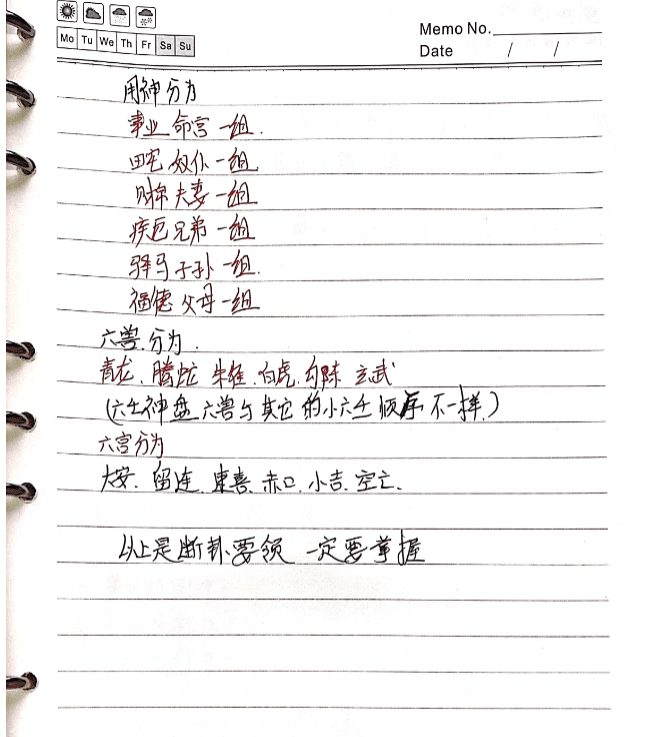 Memo No.
Mo Tu We Th Fr Sa Su
Date / /
用神分为
事业 命宫 一组.
田宅 奴仆 一组
财帛 夫妻 一组
疾厄 兄弟 一组
驿马 子孙 一组.
福德 父母 一组
六兽.分为.
青龙.腾蛇 朱雀.白虎.勾陈 玄武
(六壬神盘 六兽与其它的小六壬顺序不一样.)
六宫分为
大安.留连.速喜.赤口.小吉.空亡.
以上是断卦要领 一定要掌握